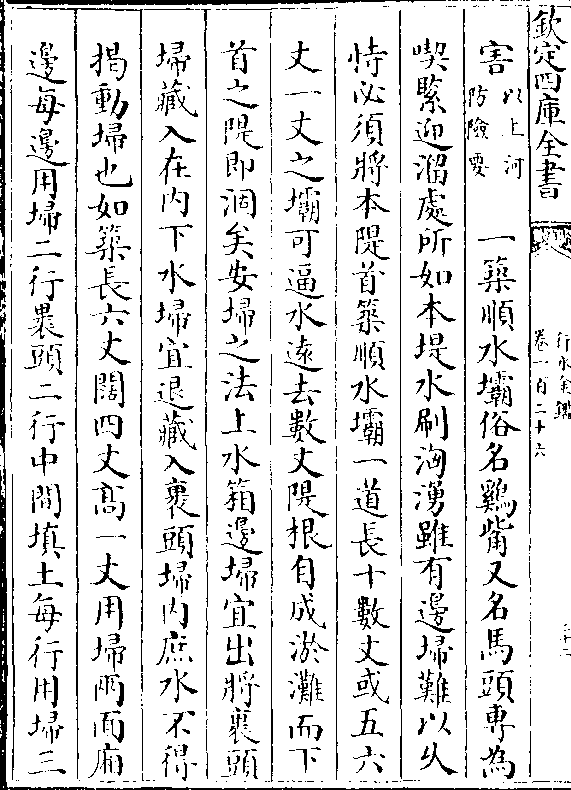 欽定四庫全書
行水金鑑
卷一百二十六
害以上河防險要
一築順水壩俗名雞嘴又名馬頭專為
喫緊迎溜處所如本堤水刷洶湧雖有邊埽難以久
恃必須將本隄首築順水壩一道長十數丈或五六
丈一丈之壩可逼水遠去數丈隄根自成淤灘而下
首之隄即涸矣安埽之法上水箱邊埽宜出將裹頭
埽藏入在内下水埽宜退藏入裹頭埽内庶水不得
揭動埽也如築長六丈闊四丈髙一丈用埽兩面廂
邊每邊用埽二行裹頭二行中間填土每行用埽三